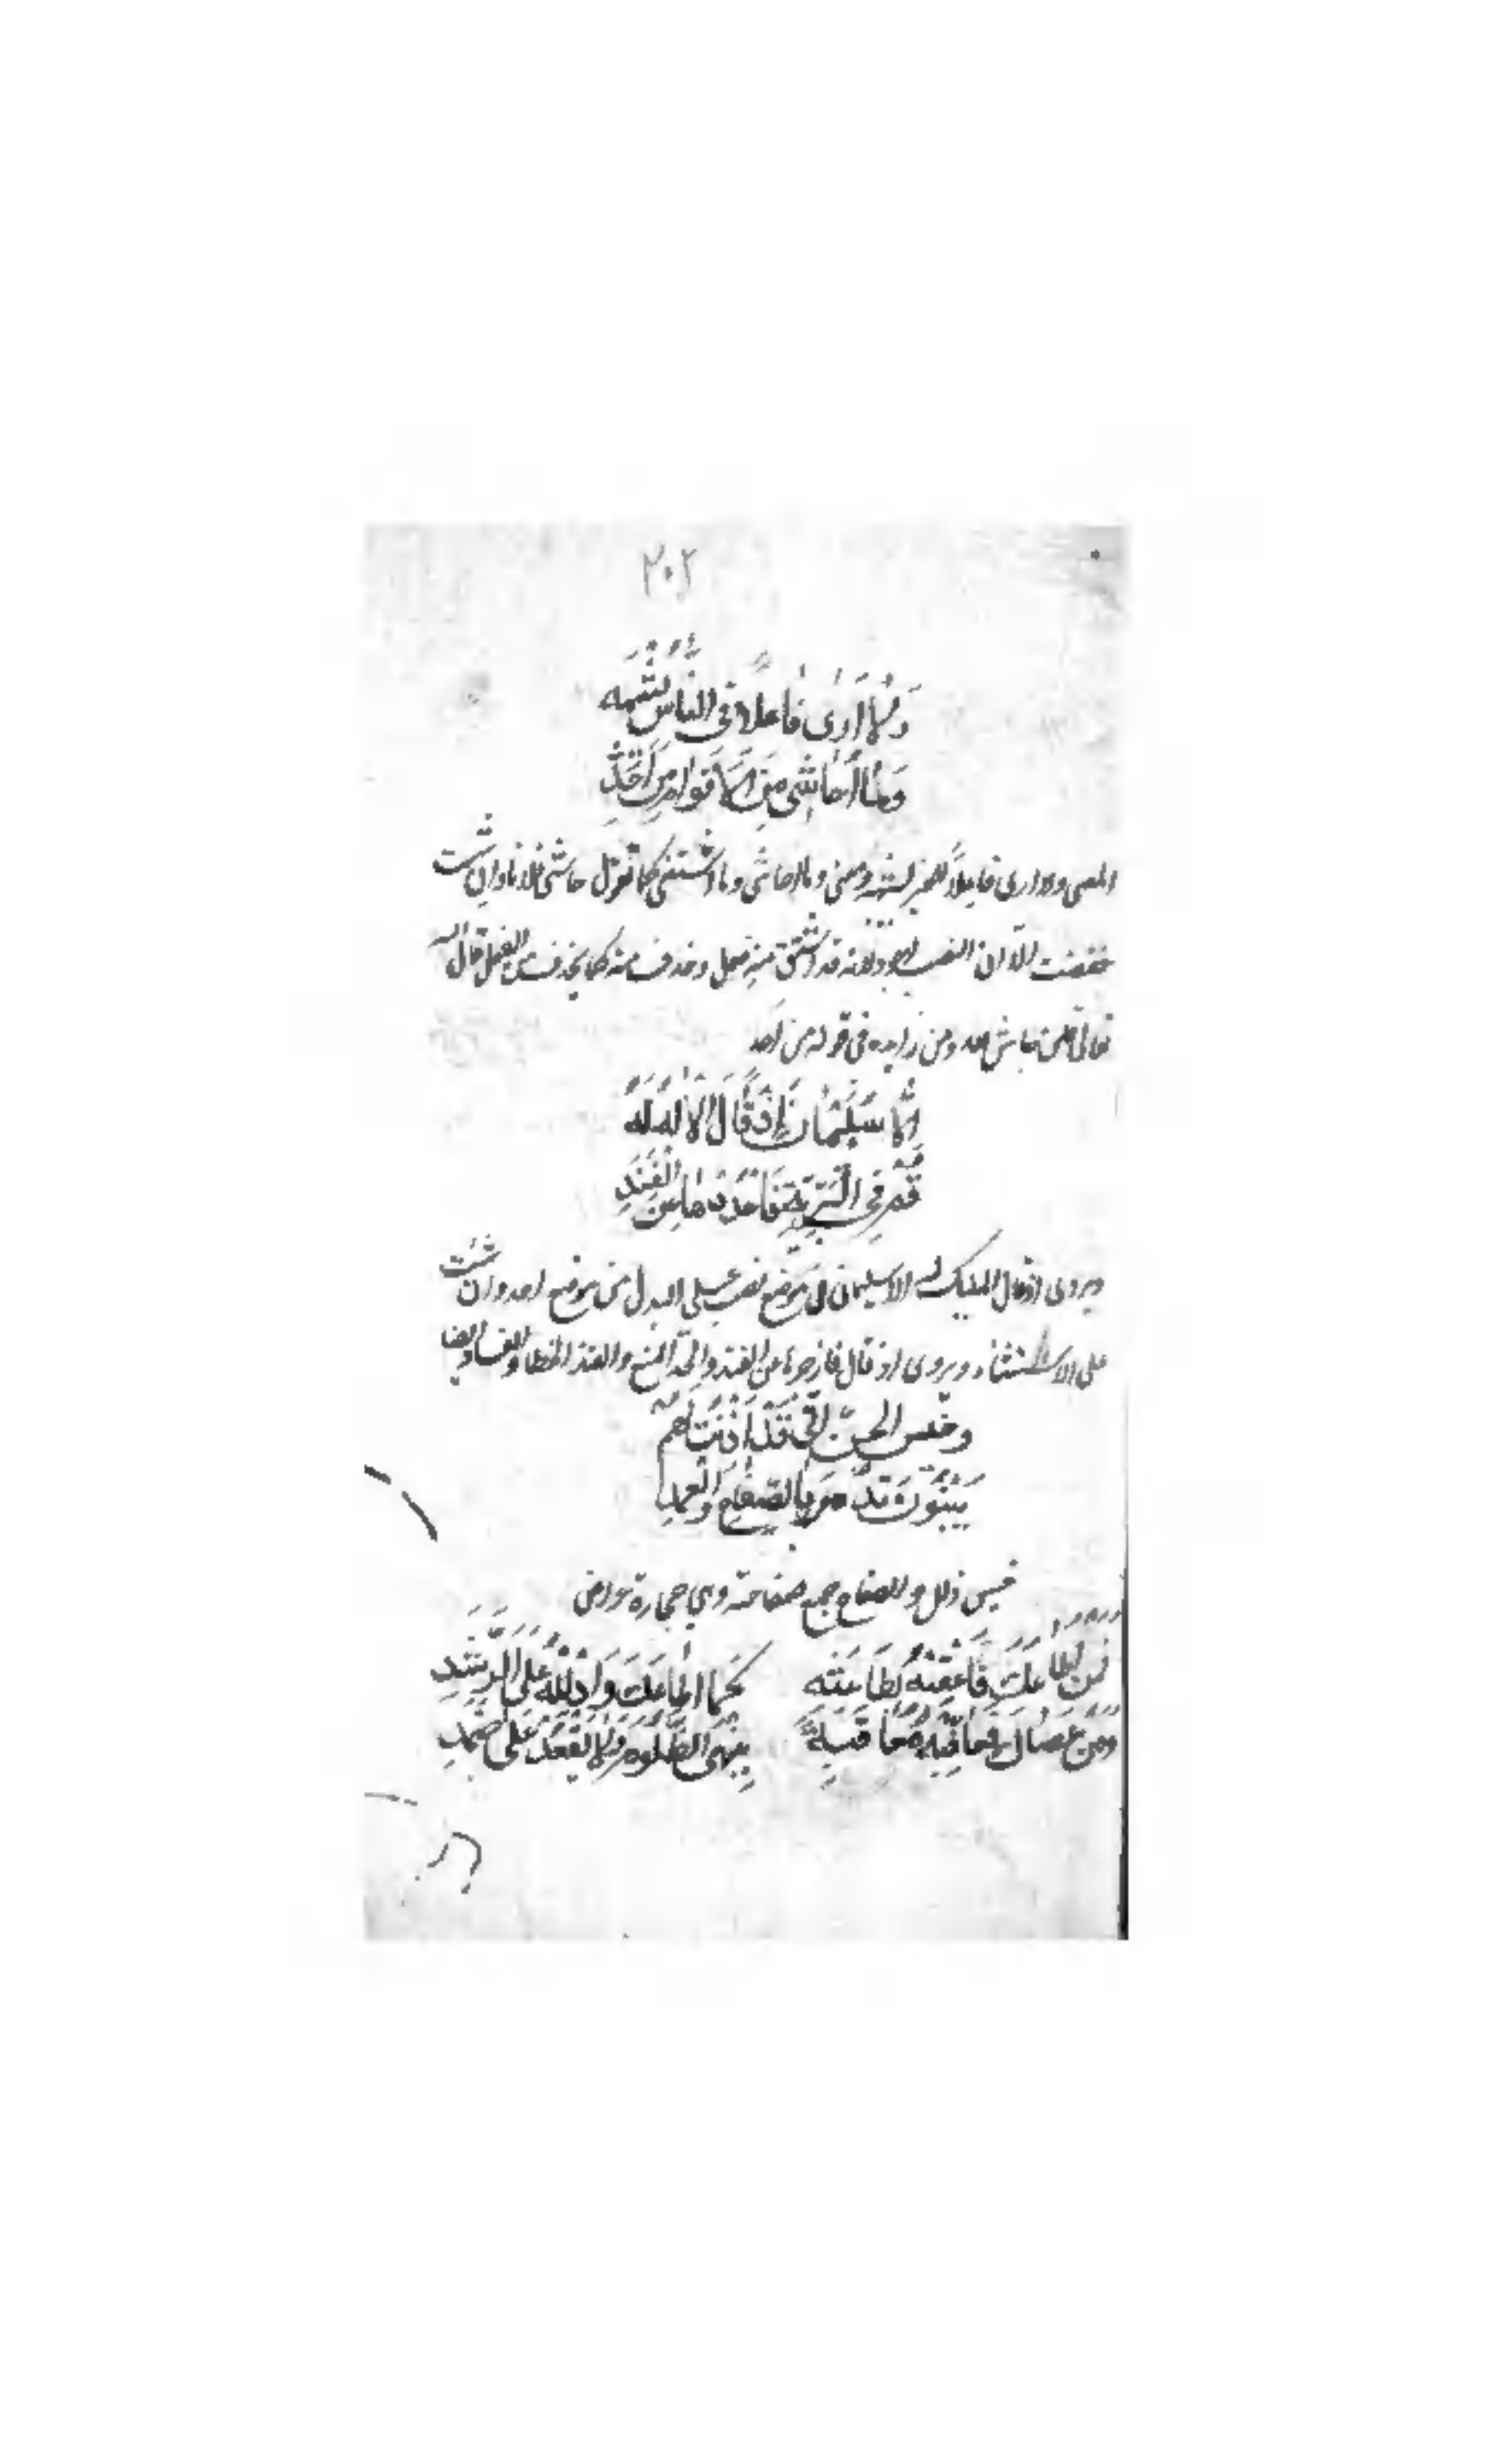 ٢٠٢
وَلَا اَرَى فَاعِلًا فِي النَّاسِ يُشْبِهُه
وَمَا اُحَاشِي مِنَ الْاَقْوَامِ مِنْ اَحَدِ
المعنى ولا ارى فاعلاً للخير يشبهه ومعنى وما احاشى وما استثنى كما تقول حاشى فلانا وان شئت
خفضت الا ان النصب اجود لانه قد اشتق منه فعل وحذف منه كما يحذف من الفعل قال الله
تعالى قلن حاش لله ومن زايدة فى قوله من احد
اِلَّا سُلَيْمَانَ اِذْ قَالَ الْاِلٰهُ لَهُ
قُمْ فِي الْبَرِيَّةِ فَاحْدُدْهَا عَنِ الْفَنَدِ
ويروى اذ قال المليك له الا سليمان فى موضع نصب على البدل من موضع احد وان شئت
على الاستثناء ويروى اذ قال فازجرها عن الفند والحد المنع والفند الخطا
وخَيِّس الجِنَّ اِنِّي قَدْ اَذِنْتُ لَهُمْ
يَبْنُونَ تَدْمُرَ بِالصُّفَّاحِ وَالْعَمَدِ
خيس ذلل والصفاح جمع صفاحة وهي حجارة عراض
فَمَنْ اَطَاعَكَ فَاَعْقِبْهُ بِطَاعَتِهِ كَمَا اَطَاعَكَ وَادْلُلْهُ عَلَى الرَّشَدِ
وَمَنْ عَصَاكَ فَعَاقِبْهُ مُعَاقَبَةً تَنْهَى الظَّلُومَ وَلَا تَقْعُدْ عَلَى ضَمَدِ